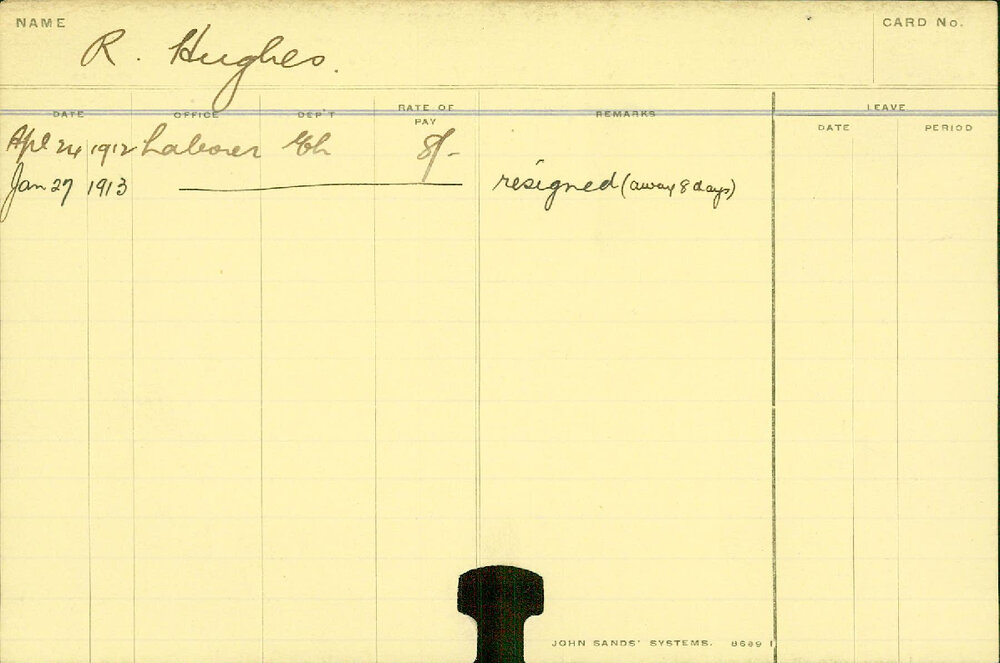 NAME
R. Hughes.
CARD No.
DATE OFFICE DEP'T RATE OF PAY REMARKS LEAVE
DATE PERIOD
Apl 24 1912 Laborer 8/-
Jan 27 1913 resigned (away 8 days)
JOHN SANDS' SYSTEMS. 8689